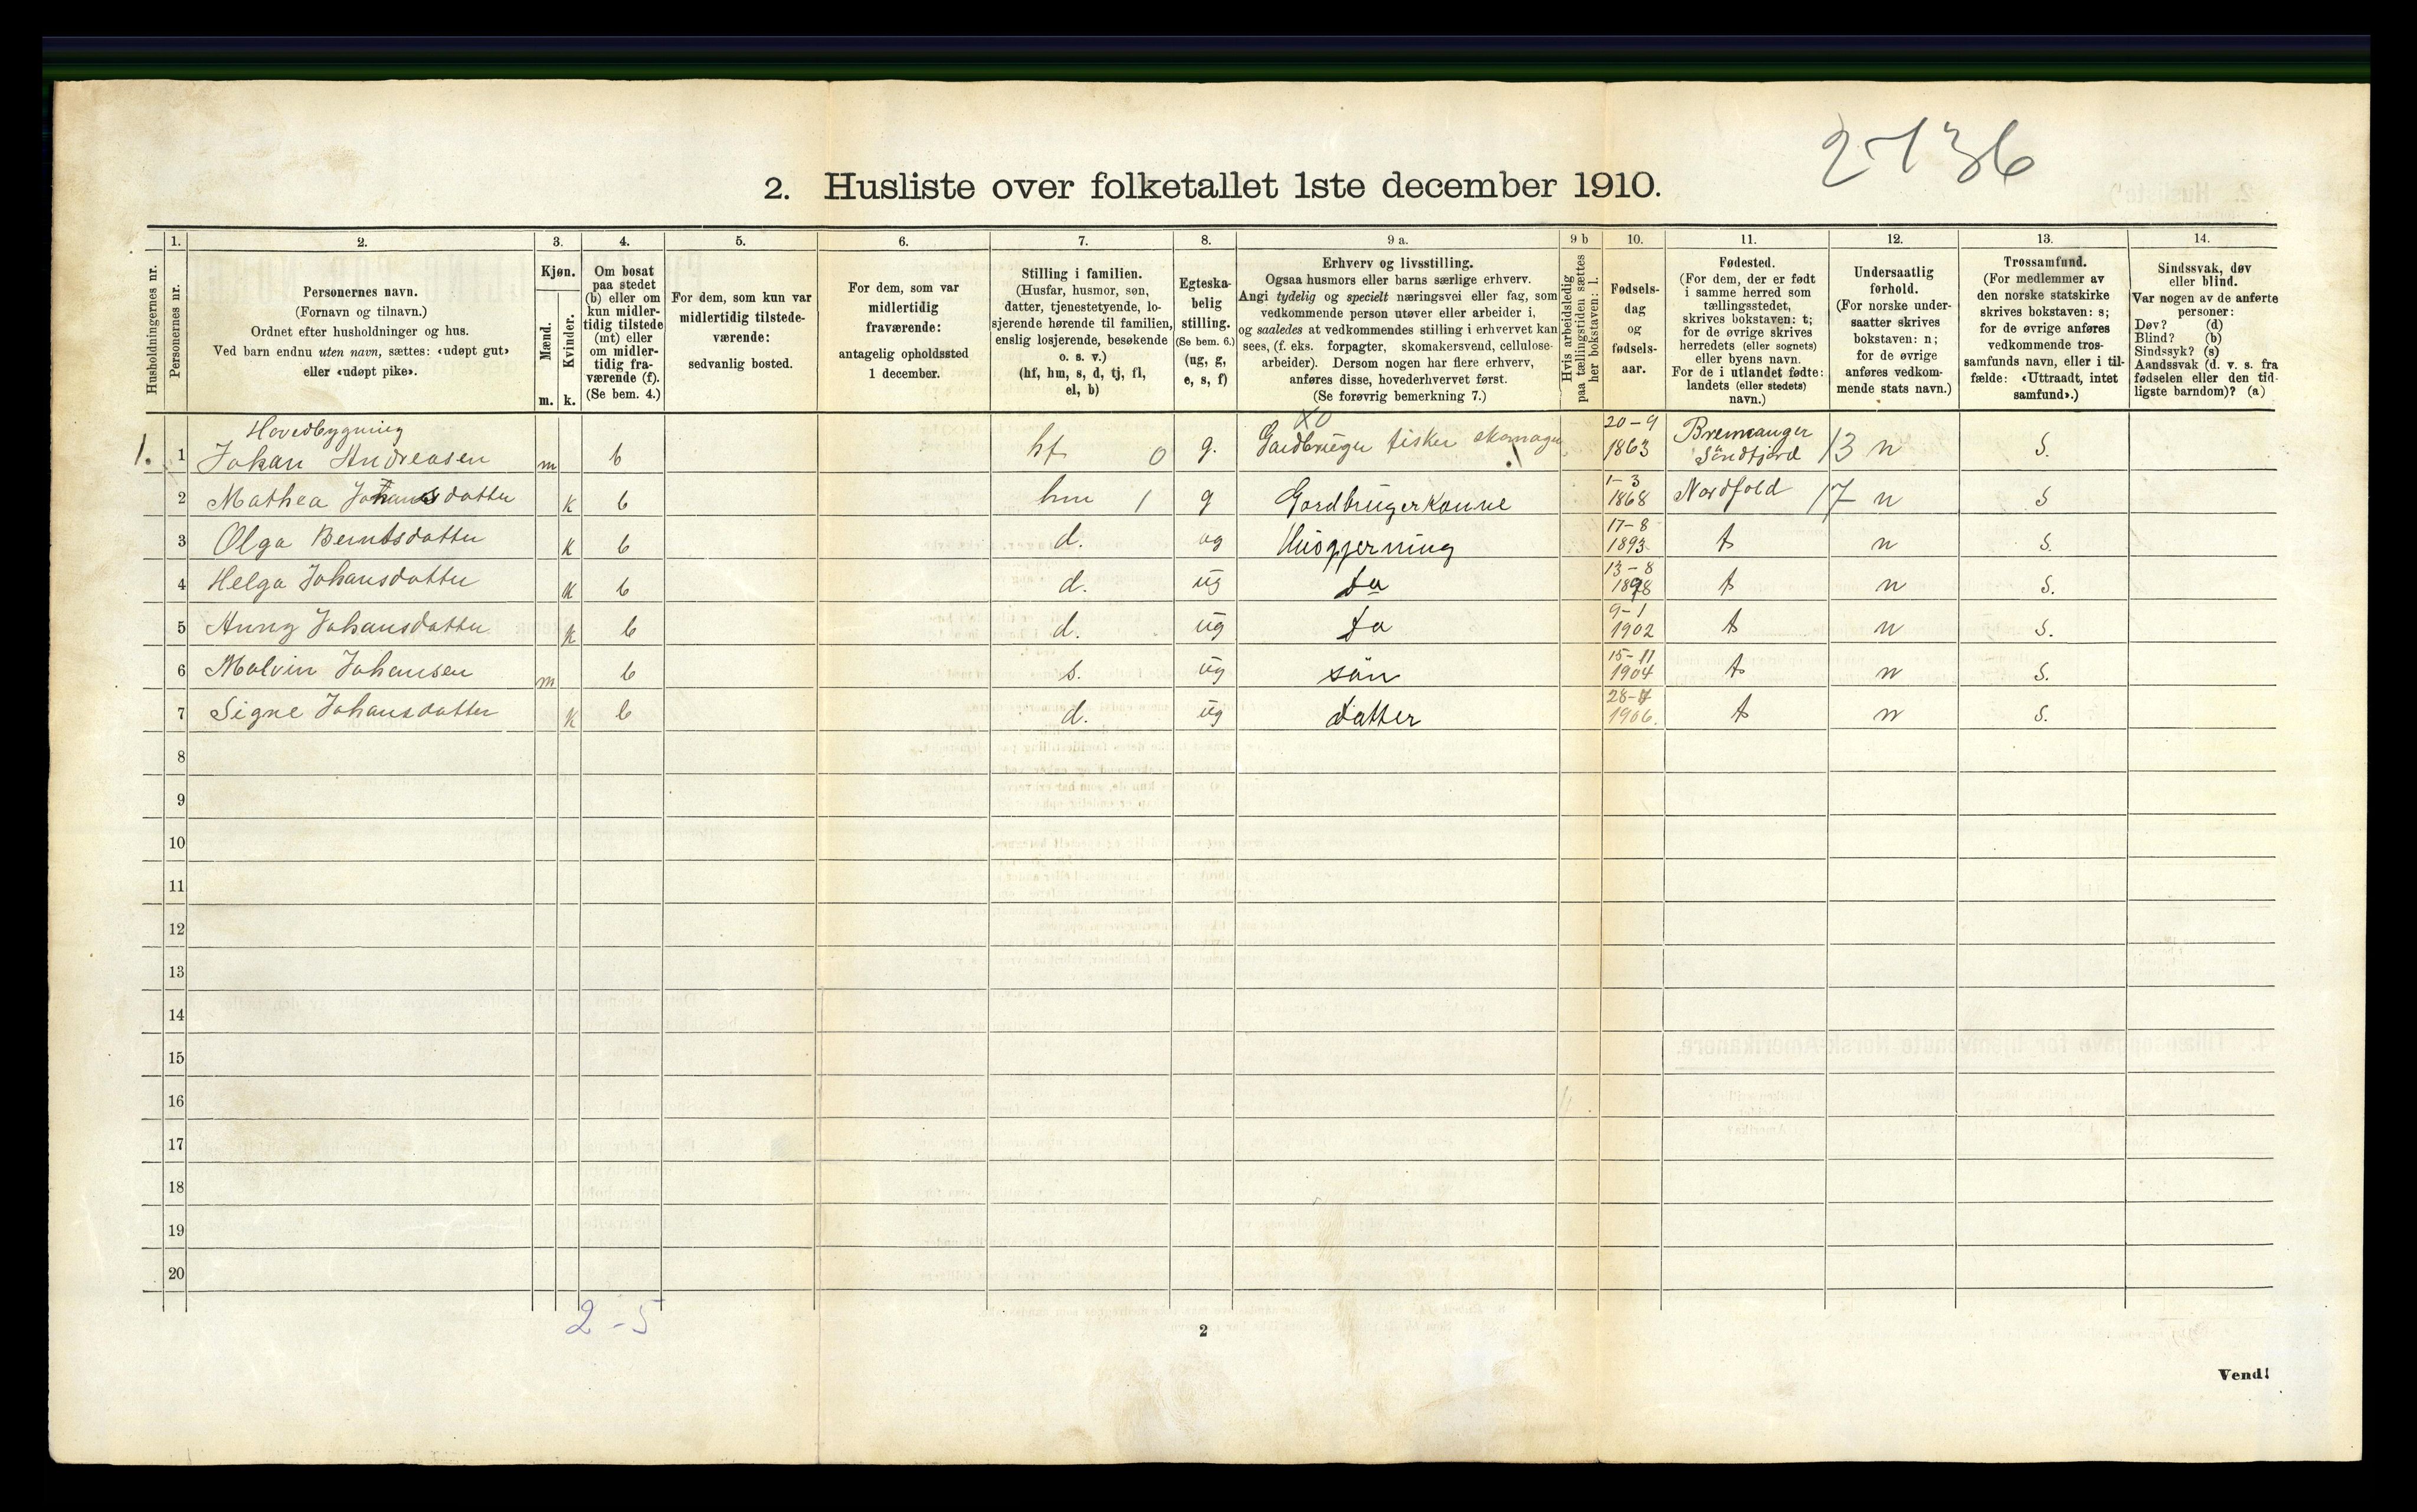 2736
2. Husliste over folketallet 1ste december 1910.
Husholdningernes nr.
1.
Personernes nr.
2.
Personernes navn.
(Fornavn og tilnavn.)
Ordnet efter husholdninger og hus.
Ved barn endnu uten navn, sættes: «udøpt gut»
eller «udøpt pike».
3.
Kjøn.
Mænd.
Kvinder.
m. k.
4.
Om bosat
paa stedet
(b) eller om
kun midler-
tidig tilstede
(mt) eller
om midler-
tidig fra-
værende (f).
(Se bem. 4.)
5.
For dem, som kun var
midlertidig tilstede-
værende:
sedvanlig bosted.
6.
For dem, som var
midlertidig
fraværende:
antagelig opholdssted
1 december.
7.
Stilling i familien.
(Husfar, husmor, søn,
datter, tjenestetyende, lo-
sjerende hørende til familien,
enslig losjerende, besøkende
o. s. v.)
(hf, hm, s, d, tj, fl,
el, b)
8.
Egteska-
belig
stilling.
(Se bem. 6.)
(ug, g,
e, s, f)
9 a.
Erhverv og livsstilling.
Ogsaa husmors eller barns særlige erhverv.
Angi tydelig og specielt næringsvei eller fag, som
vedkommende person utøver eller arbeider i,
og saaledes at vedkommendes stilling i erhvervet kan
sees, (f. eks. forpagter, skomakersvend, cellulose-
arbeider). Dersom nogen har flere erhverv,
anføres disse, hovederhvervet først.
(Se forøvrig bemerkning 7.)
9 b
Hvis arbeidsledig
paa tællingstiden sættes
her bokstaven: l.
10.
Fødsels-
dag
og
fødsels-
aar.
11.
Fødested.
(For dem, der er født
i samme herred som
tællingsstedet,
skrives bokstaven: t;
for de øvrige skrives
herredets (eller sognets)
eller byens navn.
For de i utlandet fødte:
landets (eller stedets)
navn.)
12.
Undersaatlig
forhold.
(For norske under-
saatter skrives
bokstaven: n;
for de øvrige
anføres vedkom-
mende stats navn.)
13.
Trossamfund.
(For medlemmer av
den norske statskirke
skrives bokstaven: s;
for de øvrige anføres
vedkommende tros-
samfunds navn, eller i til-
fælde: «Uttraadt, intet
samfund».)
14.
Sindssvak, døv
eller blind.
Var nogen av de anførte
personer:
Døv? (d)
Blind? (b)
Sindssyk? (s)
Aandssvak (d. v. s. fra
fødselen eller den tid-
ligste barndom)? (a)
Hovedbygning
1. 1 Johan Andreasen m b hf 0 g. XO Gardbruger fisker skomager 20-9 1863 Bremanger Söndfjord 13 n S.
2 Mathea Johansdatter k b hm 1 g Gardbrugerkonne 1-3 1868 Nordfold 17 n S
3 Olga Berntsdatter k b d. ug Husgjerning 17-8 1893 t n S.
4 Helga Johansdatter k b d. ug da 13-8 1898 t n S.
5 Anny Johansdatter k b d. ug da 9-1 1902 t n S.
6 Malvin Johansen m b s. ug sön 15-11 1904 t n S.
7 Signe Johansdatter k b d. ug datter 28-7 1906. t n S.
8
9
10
11
12
13
14
15
16
17
18
19
20
2-5
2
Vend!